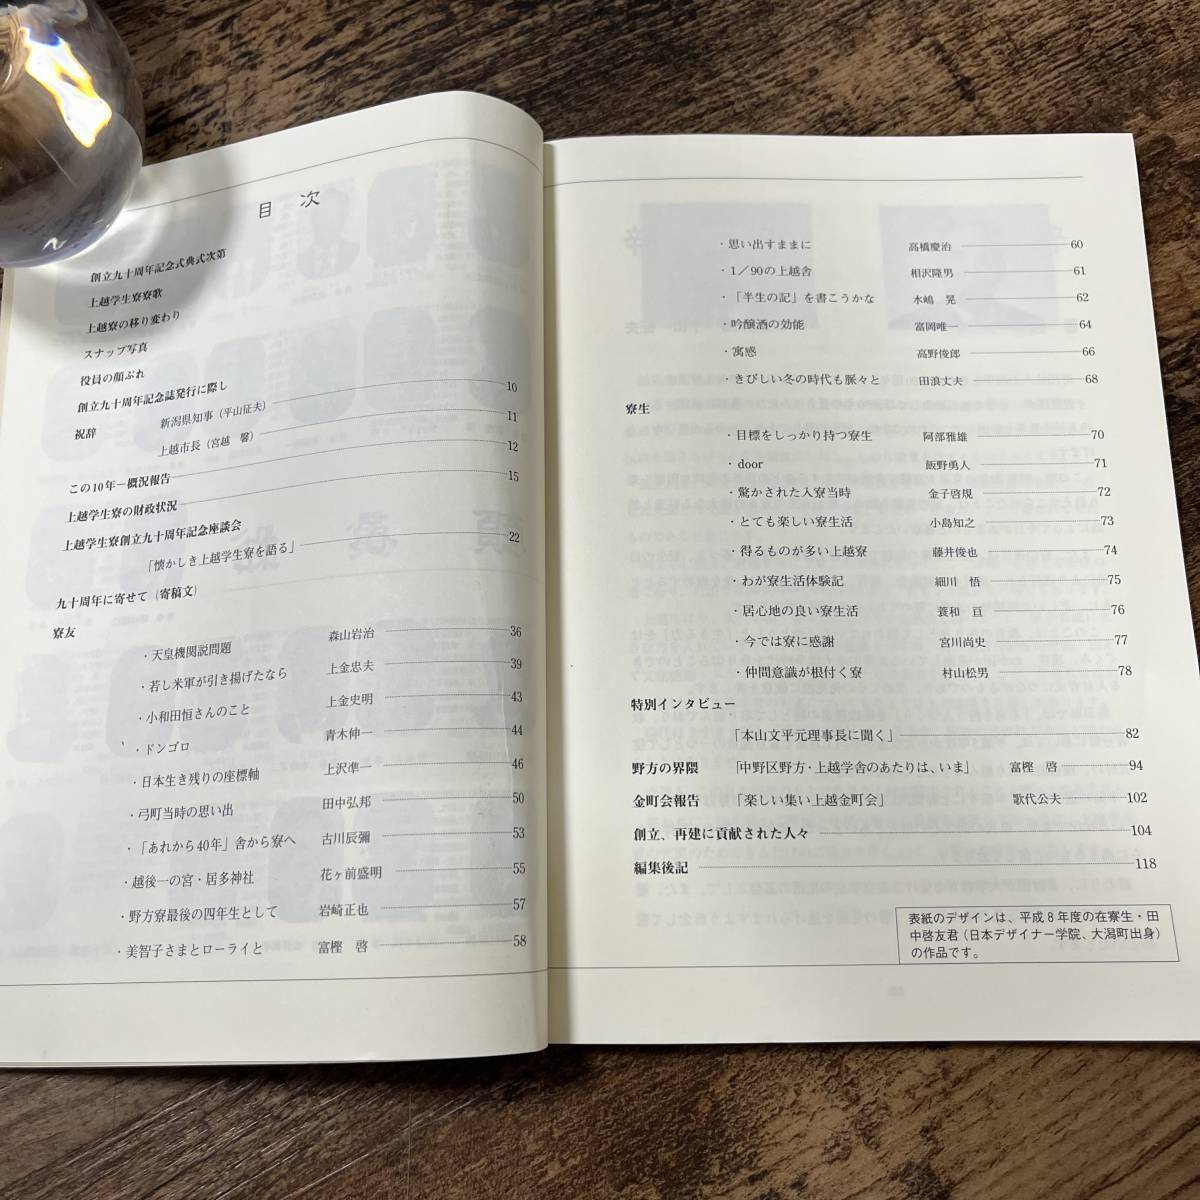 目 次
創立九十周年記念式典式次第
上越学生寮寮歌
上越寮の移り変わり
スナップ写真
役員の顔ぶれ
創立九十周年記念誌発行に際し 10
祝辞 新潟県知事（平山征夫） 11
上越市長（宮越 馨） 12
この10年－概況報告 15
上越学生寮の財政状況
上越学生寮創立九十周年記念座談会
「懐かしき上越学生寮を語る」 22
九十周年に寄せて（寄稿文）
寮友
・天皇機関説問題 森山岩治 36
・若し米軍が引き揚げたなら 上金忠夫 39
・小和田恒さんのこと 上金史明 43
・ドンゴロ 青木伸一 44
・日本生き残りの座標軸 上沢準一 46
・弓町当時の思い出 田中弘邦 50
・「あれから40年」舎から寮へ 古川辰彌 53
・越後一の宮・居多神社 花ヶ前盛明 55
・野方寮最後の四年生として 岩崎正也 57
・美智子さまとローライと 富樫 啓 58
・思い出すままに 高橋慶治 60
・1／90の上越舎 相沢隆男 61
・「半生の記」を書こうかな 水嶋 晃 62
・吟醸酒の効能 富岡唯一 64
・寓感 高野俊郎 66
・きびしい冬の時代も脈々と 田浪丈夫 68
寮生
・目標をしっかり持つ寮生 阿部雅雄 70
・door 飯野勇人 71
・驚かされた入寮当時 金子啓規 72
・とても楽しい寮生活 小島知之 73
・得るものが多い上越寮 藤井俊也 74
・わが寮生活体験記 細川 悟 75
・居心地の良い寮生活 蓑和 亘 76
・今では寮に感謝 宮川尚史 77
・仲間意識が根付く寮 村山松男 78
特別インタビュー
「本山文平元理事長に聞く」 82
野方の界隈 「中野区野方・上越学舎のあたりは、いま」 富樫 啓 94
金町会報告 「楽しい集い上越金町会」 歌代公夫 102
創立、再建に貢献された人々 104
編集後記 118
表紙のデザインは、平成８年度の在寮生・田
中啓友君（日本デザイナー学院、大潟町出身）
の作品です。